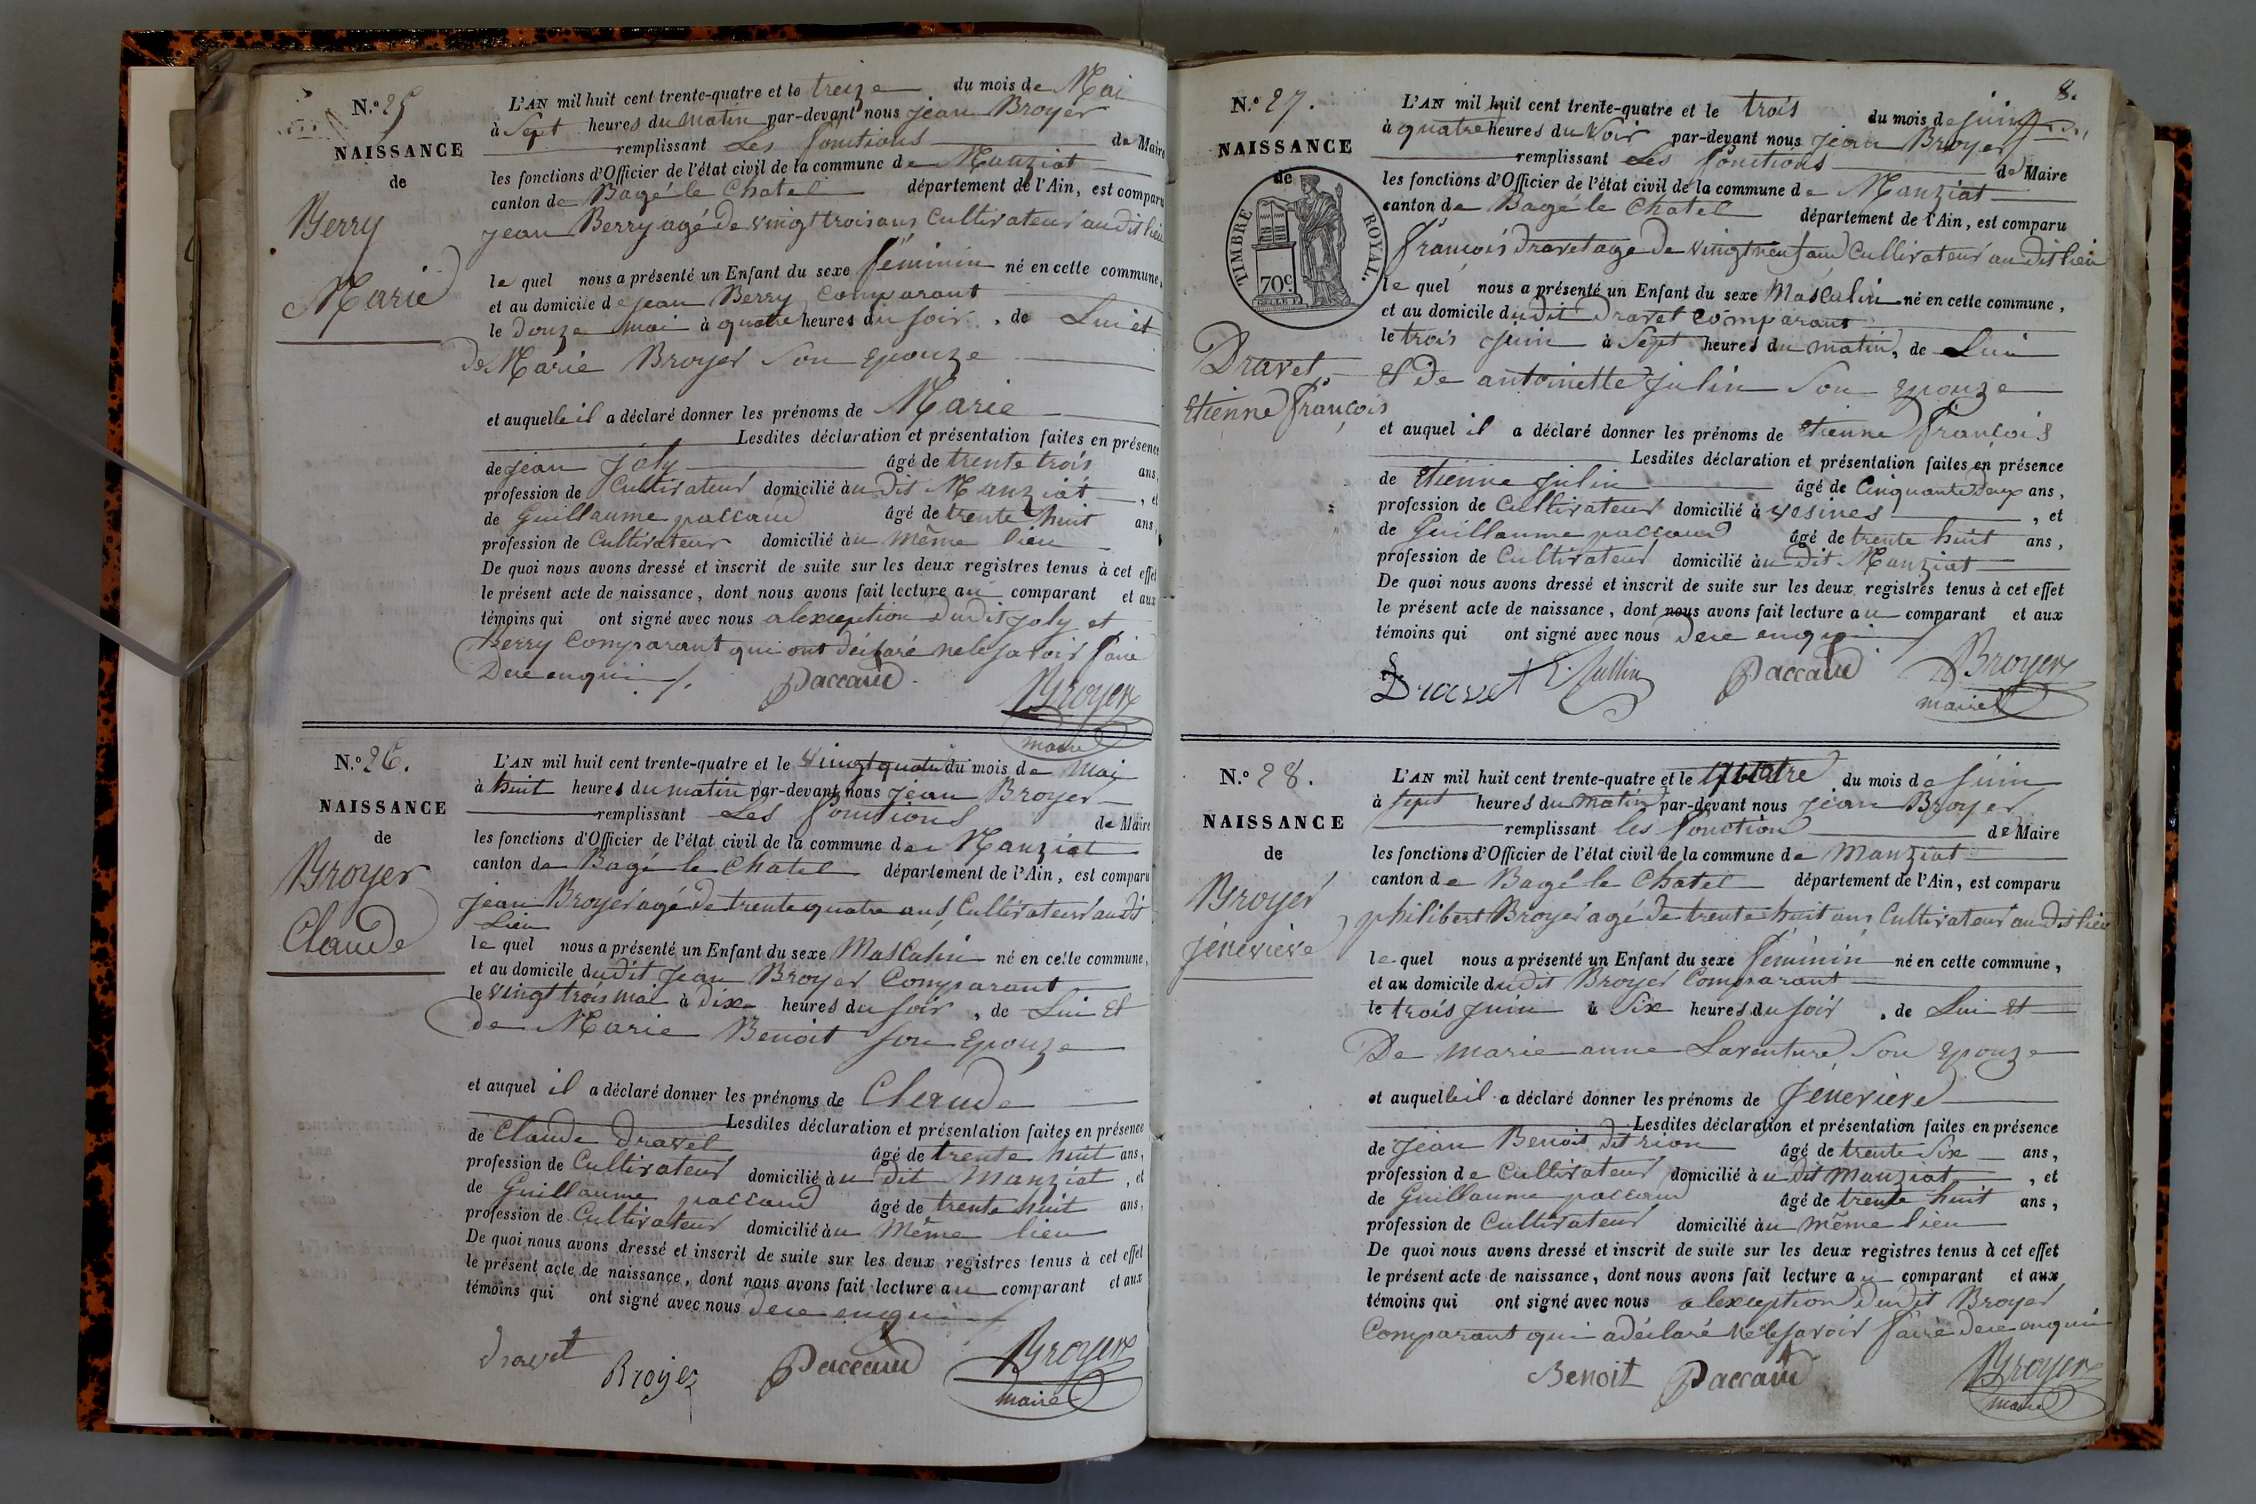 N.º 25
NAISSANCE
de
Berry
Marie
L'AN mil huit cent trente-quatre et le treize du mois de Mai
à Sept heures du matin par-devant nous jean Broyer
remplissant Les fonctions de Maire
les fonctions d'Officier de l'état civil de la commune de Manziat
canton de Bagé le Chatel département de l'Ain, est comparu
jean Berry agé de vingt trois ans Cultivateur au dit lieu
le quel nous a présenté un Enfant du sexe féminin né en cette commune,
et au domicile de jean Berry Comparant
le douze mai à quatre heures du soir, de Lui et
de Marie Broyer Son Epouze
et auquelle il a déclaré donner les prénoms de Marie
Lesdites déclaration et présentation faites en présence
de jean joly âgé de trente trois ans,
profession de Cultivateur domicilié àu Dit Manziat, et
de Guillaume paccaud âgé de trente huit ans,
profession de Cultivateur domicilié àu même lieu
De quoi nous avons dressé et inscrit de suite sur les deux registres tenus à cet effet
le présent acte de naissance, dont nous avons fait lecture au comparant et aux
témoins qui ont signé avec nous alexception dudit joly et
Berry Comparant qui ont déclaré ne le savoir faire
Dece enquis
Paccaud
Broyer
maire
N.º 26.
NAISSANCE
de
Broyer
Claude
L'AN mil huit cent trente-quatre et le vingt quatre du mois de Mai
à huit heures du matin par-devant nous jean Broyer
remplissant Les fonctions de Maire
les fonctions d'Officier de l'état civil de la commune de Manziat
canton de Bagé le Chatel département de l'Ain, est comparu
jean Broyer agé de trente quatre ans, Cultivateur au dit
Lieu
le quel nous a présenté un Enfant du sexe Masculin né en cette commune,
et au domicile dudit jean Broyer Comparant
le vingt trois mai à dix heures du soir, de Lui Et
de Marie Benoit son Epouze
et auquel il a déclaré donner les prénoms de Claude
Lesdites déclaration et présentation faites en présence
de Claude Dravet âgé de trente huit ans,
profession de Cultivateur domicilié àu dit Manziat, et
de Guillaume paccaud âgé de trente huit ans,
profession de Cultivateur domicilié àu même lieu
De quoi nous avons dressé et inscrit de suite sur les deux registres tenus à cet effet
le présent acte de naissance, dont nous avons fait lecture au comparant et aux
témoins qui ont signé avec nous dece enquis
dravet
Broyer
Paccaud
Broyer
maire
8.
N.º 27.
NAISSANCE
de
TIMBRE ROYAL.
70c.
Dravet
Etienne françois
L'AN mil huit cent trente-quatre et le trois du mois de juin
à quatre heures du Soir par-devant nous jean Broyer
remplissant Les fonctions de Maire
les fonctions d'Officier de l'état civil de la commune de Manziat
canton de Bagé le Chatel département de l'Ain, est comparu
françois dravet age de vingt neuf ans Cultivateur au dit lieu
le quel nous a présenté un Enfant du sexe Masculin né en cette commune,
et au domicile dudit Dravet Comparant
le trois juin à Sept heures du matin, de Lui
Et De antoinette julin Son Epouze
et auquel il a déclaré donner les prénoms de Etienne françois
Lesdites déclaration et présentation faites en présence
de Etienne julin âgé de Cinquante deux ans,
profession de Cultivateur domicilié à vesines, et
de Guillaume paccaud âgé de trente huit ans,
profession de Cultivateur domicilié àu dit Manziat
De quoi nous avons dressé et inscrit de suite sur les deux registres tenus à cet effet
le présent acte de naissance, dont nous avons fait lecture au comparant et aux
témoins qui ont signé avec nous Dece enquis
Dravet
E. Jullin
Paccaud
Broyer
maire
N.º 28.
NAISSANCE
de
Broyer
jénevieve
L'AN mil huit cent trente-quatre et le quatre du mois de juin
à sept heures du matin par-devant nous jean Broyer
remplissant les fonction de Maire
les fonctions d'Officier de l'état civil de la commune de Manziat
canton de Bagé le Chatel département de l'Ain, est comparu
philibert Broyer agé de trente huit ans Cultivateur au dit lieu
le quel nous a présenté un Enfant du sexe féminin né en cette commune,
et au domicile dudit Broyer Comparant
le trois juin à Six heures du soir, de Lui Et
De marie anne Laventure Son Epouze
et auquelle il a déclaré donner les prénoms de Jénevieve
Lesdites déclaration et présentation faites en présence
de jean Benoit dit rion âgé de trente Six ans,
profession de Cultivateur domicilié àu dit Manziat, et
de Guillaume paccaud âgé de trente huit ans,
profession de Cultivateur domicilié àu même lieu
De quoi nous avons dressé et inscrit de suite sur les deux registres tenus à cet effet
le présent acte de naissance, dont nous avons fait lecture au comparant et aux
témoins qui ont signé avec nous alexception dudit Broyer
Comparant qui a déclaré ne le savoir faire dece enquis
Benoit
Paccaud
Broyer
maire